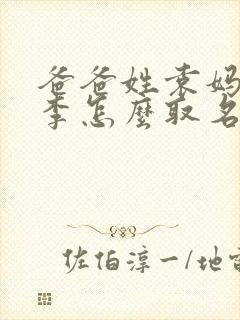 爸爸姓袁妈
李怎麼取名
佐伯淳一/地